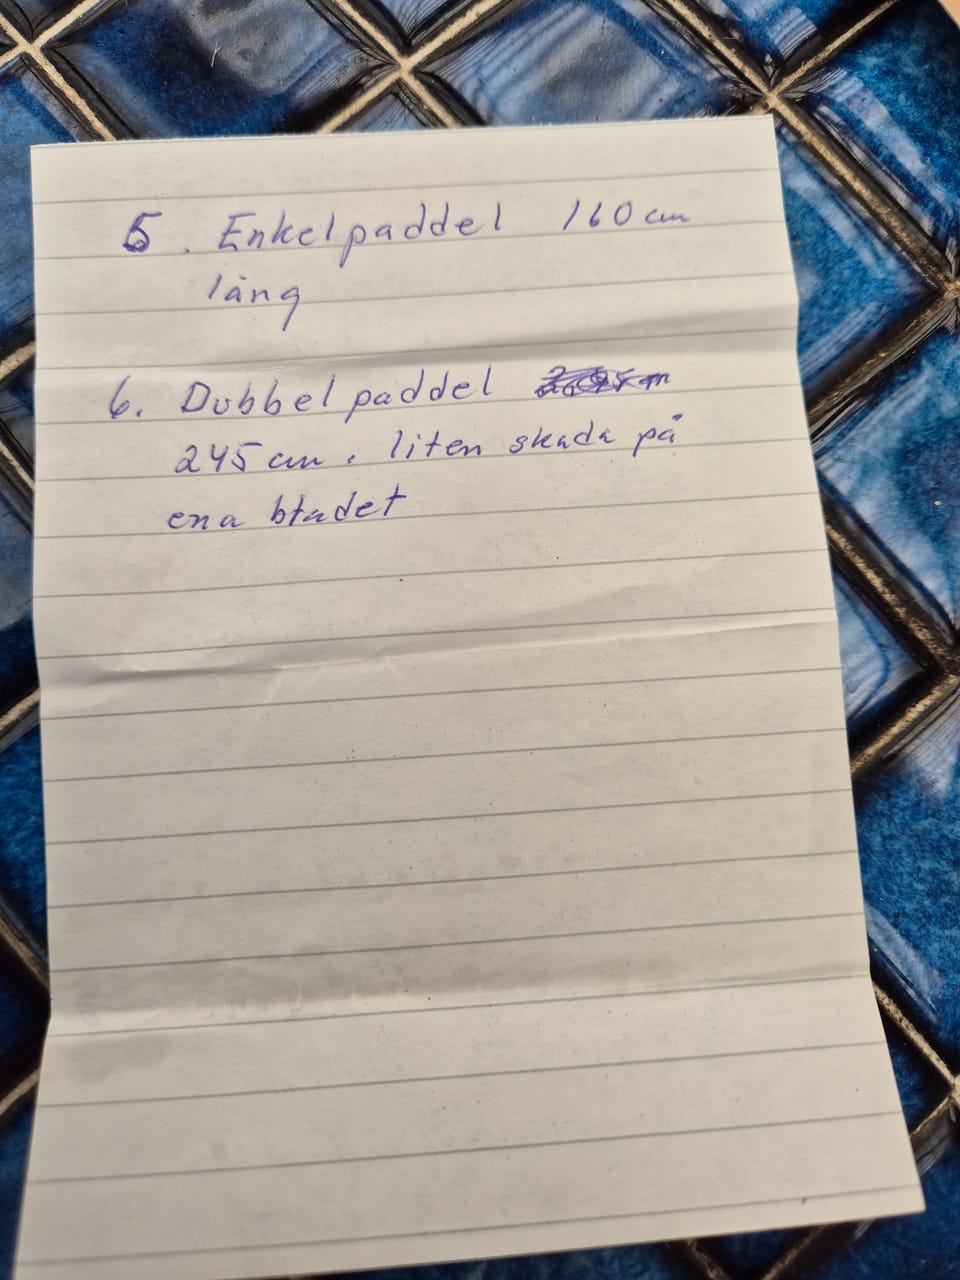 5. Enkelpaddel 160 cm
lång
6. Dubbelpaddel
245 cm. liten skada på
ena bladet